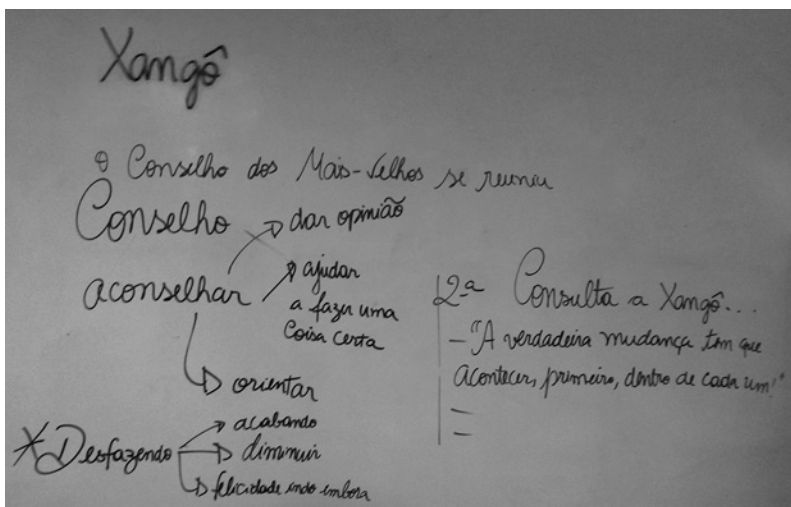 Xangô
O Conselho dos Mais-Velhos se reuniu
Conselho
dar opinião
aconselhar
ajudar
a fazer uma
Coisa certa
orientar
*Desfazendo
acabando
diminuir
felicidade indo embora
2ª Consulta a Xangô...
- "A verdadeira mudança tem que
acontecer, primeiro, dentro de cada um!"